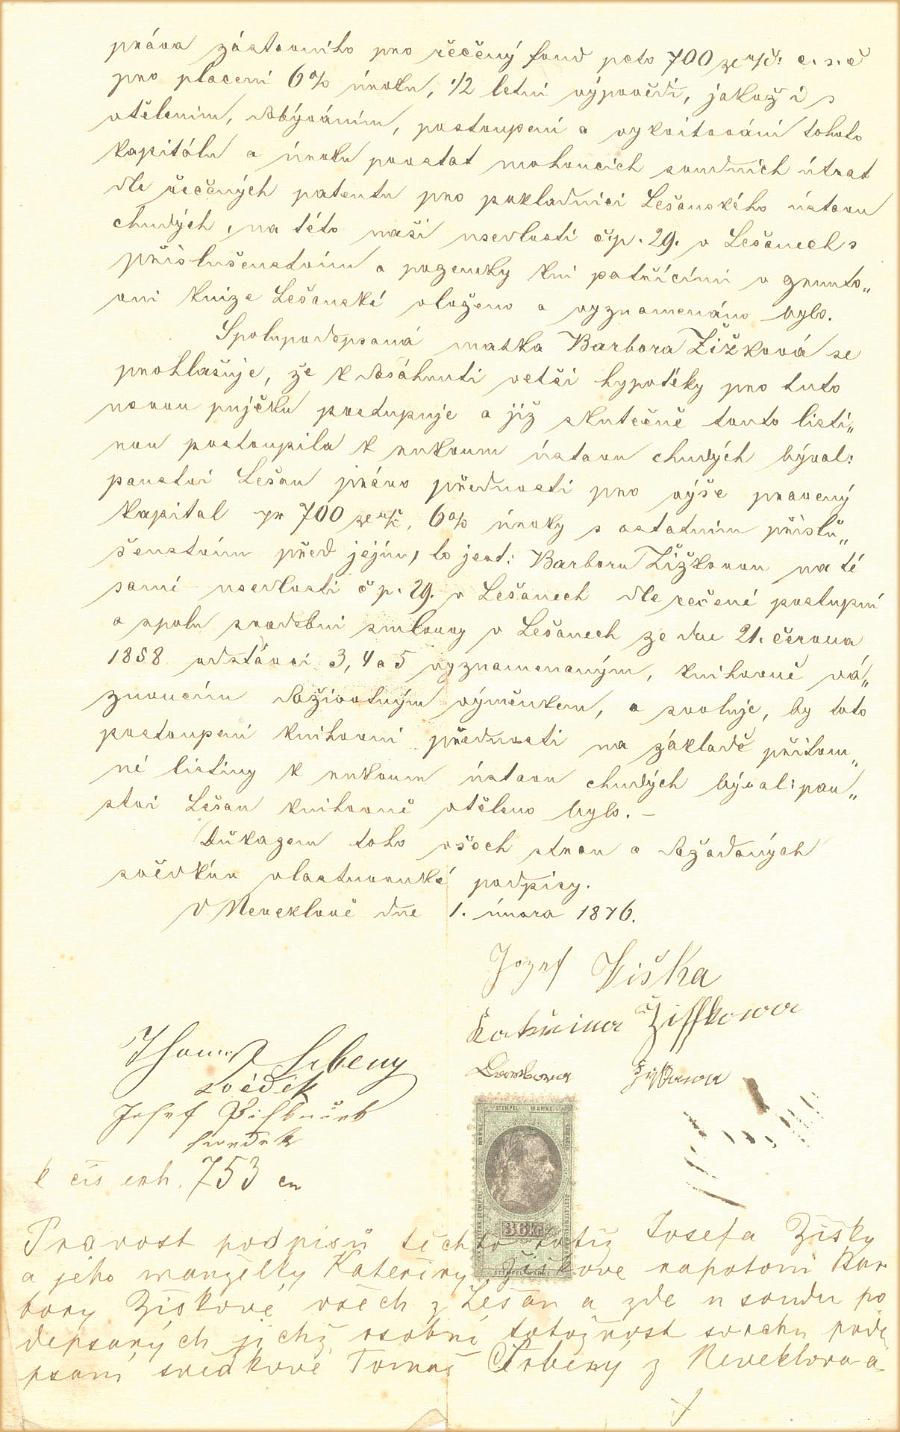 práva zástavního pro řečený fond pcto 700 zl r.č. c. s. c
pro placení 6% úroku, 1/2 letní výpovědi, jakož i s
vtělením, dobýváním, postoupení a vykvitování tohoto
kapitálu a úroku povstat mohoucích soudních útrat
dle řečených patentu pro pokladnici Lešanského ústavu
chudých, na této naší usedlosti čp. 29. v Lešanech s
příslušenstvím a pozemky k ní patřícími v grunto„
vní knize Lešanské vloženo a vyznamenáno bylo.
Spolupodepsaná matka Barbora Žižková se
prohlašuje, že k dosáhnutí vetší hypotéky pro tuto
novou pujčku postupuje a již skutečně touto listi„
nou postoupila k rukoum ústavu chudých býval:
panství Lešan právo přednosti pro výše pravený
kapital pr 700 zl r.č., 6% úroky s ostatním příslu„
šenstvím před jejím, to jest: Barboru Žižkovou na té
samé usedlosti čp. 29. v Lešanech dle rečené postupní
a spolu svadební smlouvy v Lešanech ze dne 21. června
1858 odstávci 3, 4 a 5 vyznamenaným, knihovně vá„
znoucím doživotným výměnkem, a svoluje, by toto
postoupení knihovní přednosti na základě přítom„
né listiny k rukoum ústavu chudých býval: pan„
ství Lešan knihovně vtěleno bylo. –
Důkazem toho všech stran a dožádaných
svědkův vlastnoruké podpisy.
V Neveklově dne 1. února 1876.
Jozef Žiška
Katřina Žiffkowa
Barbora
Srbeny
svědek
Josef
swedek
k čís exh. 753
STEMPEL MARKE
36 kr
Pravost podpisů těchto totiž Josefa Žišky
a jeho manzelky Kateřiny Žiškove napotom Bar
bory Žiškové, všech z Lešan a zde u soudu po
depsaných jichž osobní totožnost svrchu pode
psaní svedkové Tomaš Srbeny z Neveklova a